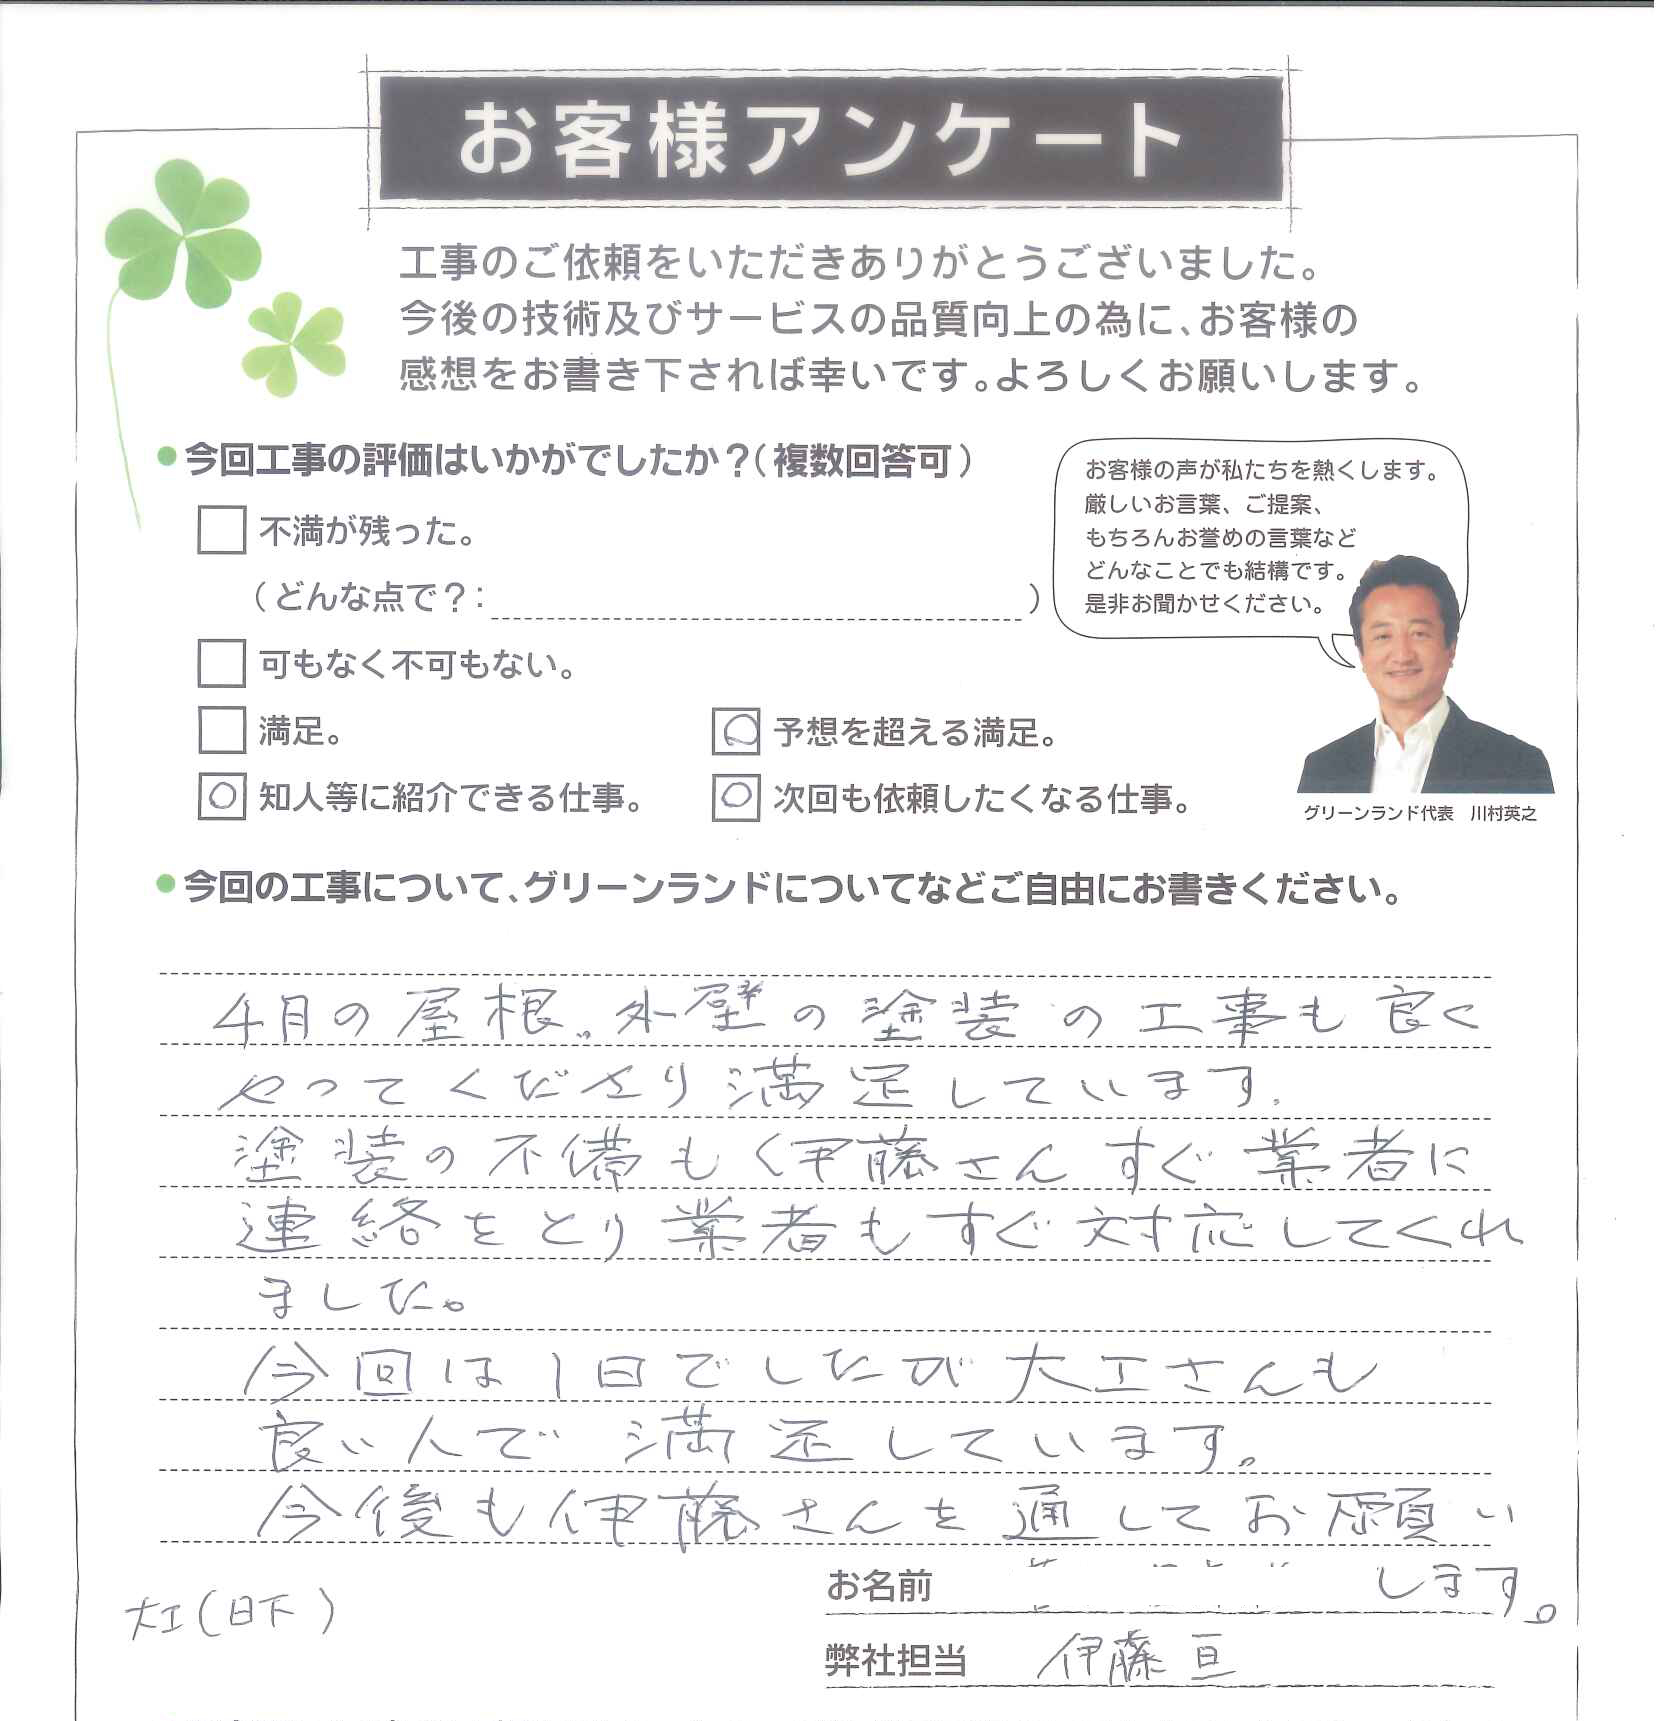 お客様アンケート
工事のご依頼をいただきありがとうございました。
今後の技術及びサービスの品質向上の為に、お客様の
感想をお書き下されば幸いです。よろしくお願いします。
●今回工事の評価はいかがでしたか？（複数回答可）
不満が残った。
（どんな点で？： ）
可もなく不可もない。
満足。
○ 予想を超える満足。
○ 知人等に紹介できる仕事。
○ 次回も依頼したくなる仕事。
お客様の声が私たちを熱くします。
厳しいお言葉、ご提案、
もちろんお誉めの言葉など
どんなことでも結構です。
是非お聞かせください。
グリーンランド代表 川村英之
●今回の工事について、グリーンランドについてなどご自由にお書きください。
4月の屋根。外壁の塗装の工事も良く
やってくださり満足しています。
塗装の不備もく伊藤さんすぐ業者に
連絡をとり業者もすぐ対応してくれ
ました。
今回は1日でしたが大工さんも
良い人で満足しています。
今後も伊藤さんを通してお願い
します。
お名前
大工(日下)
弊社担当 伊藤亘